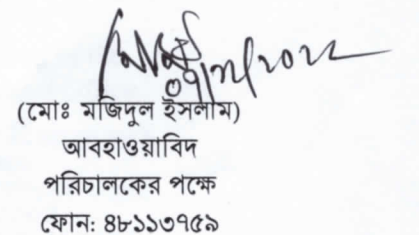 (মোঃ মজিদুল ইসলাম)
আবহাওয়াবিদ
পরিচালকের পক্ষে
ফোন: ৪৮১১৩৭৫৯